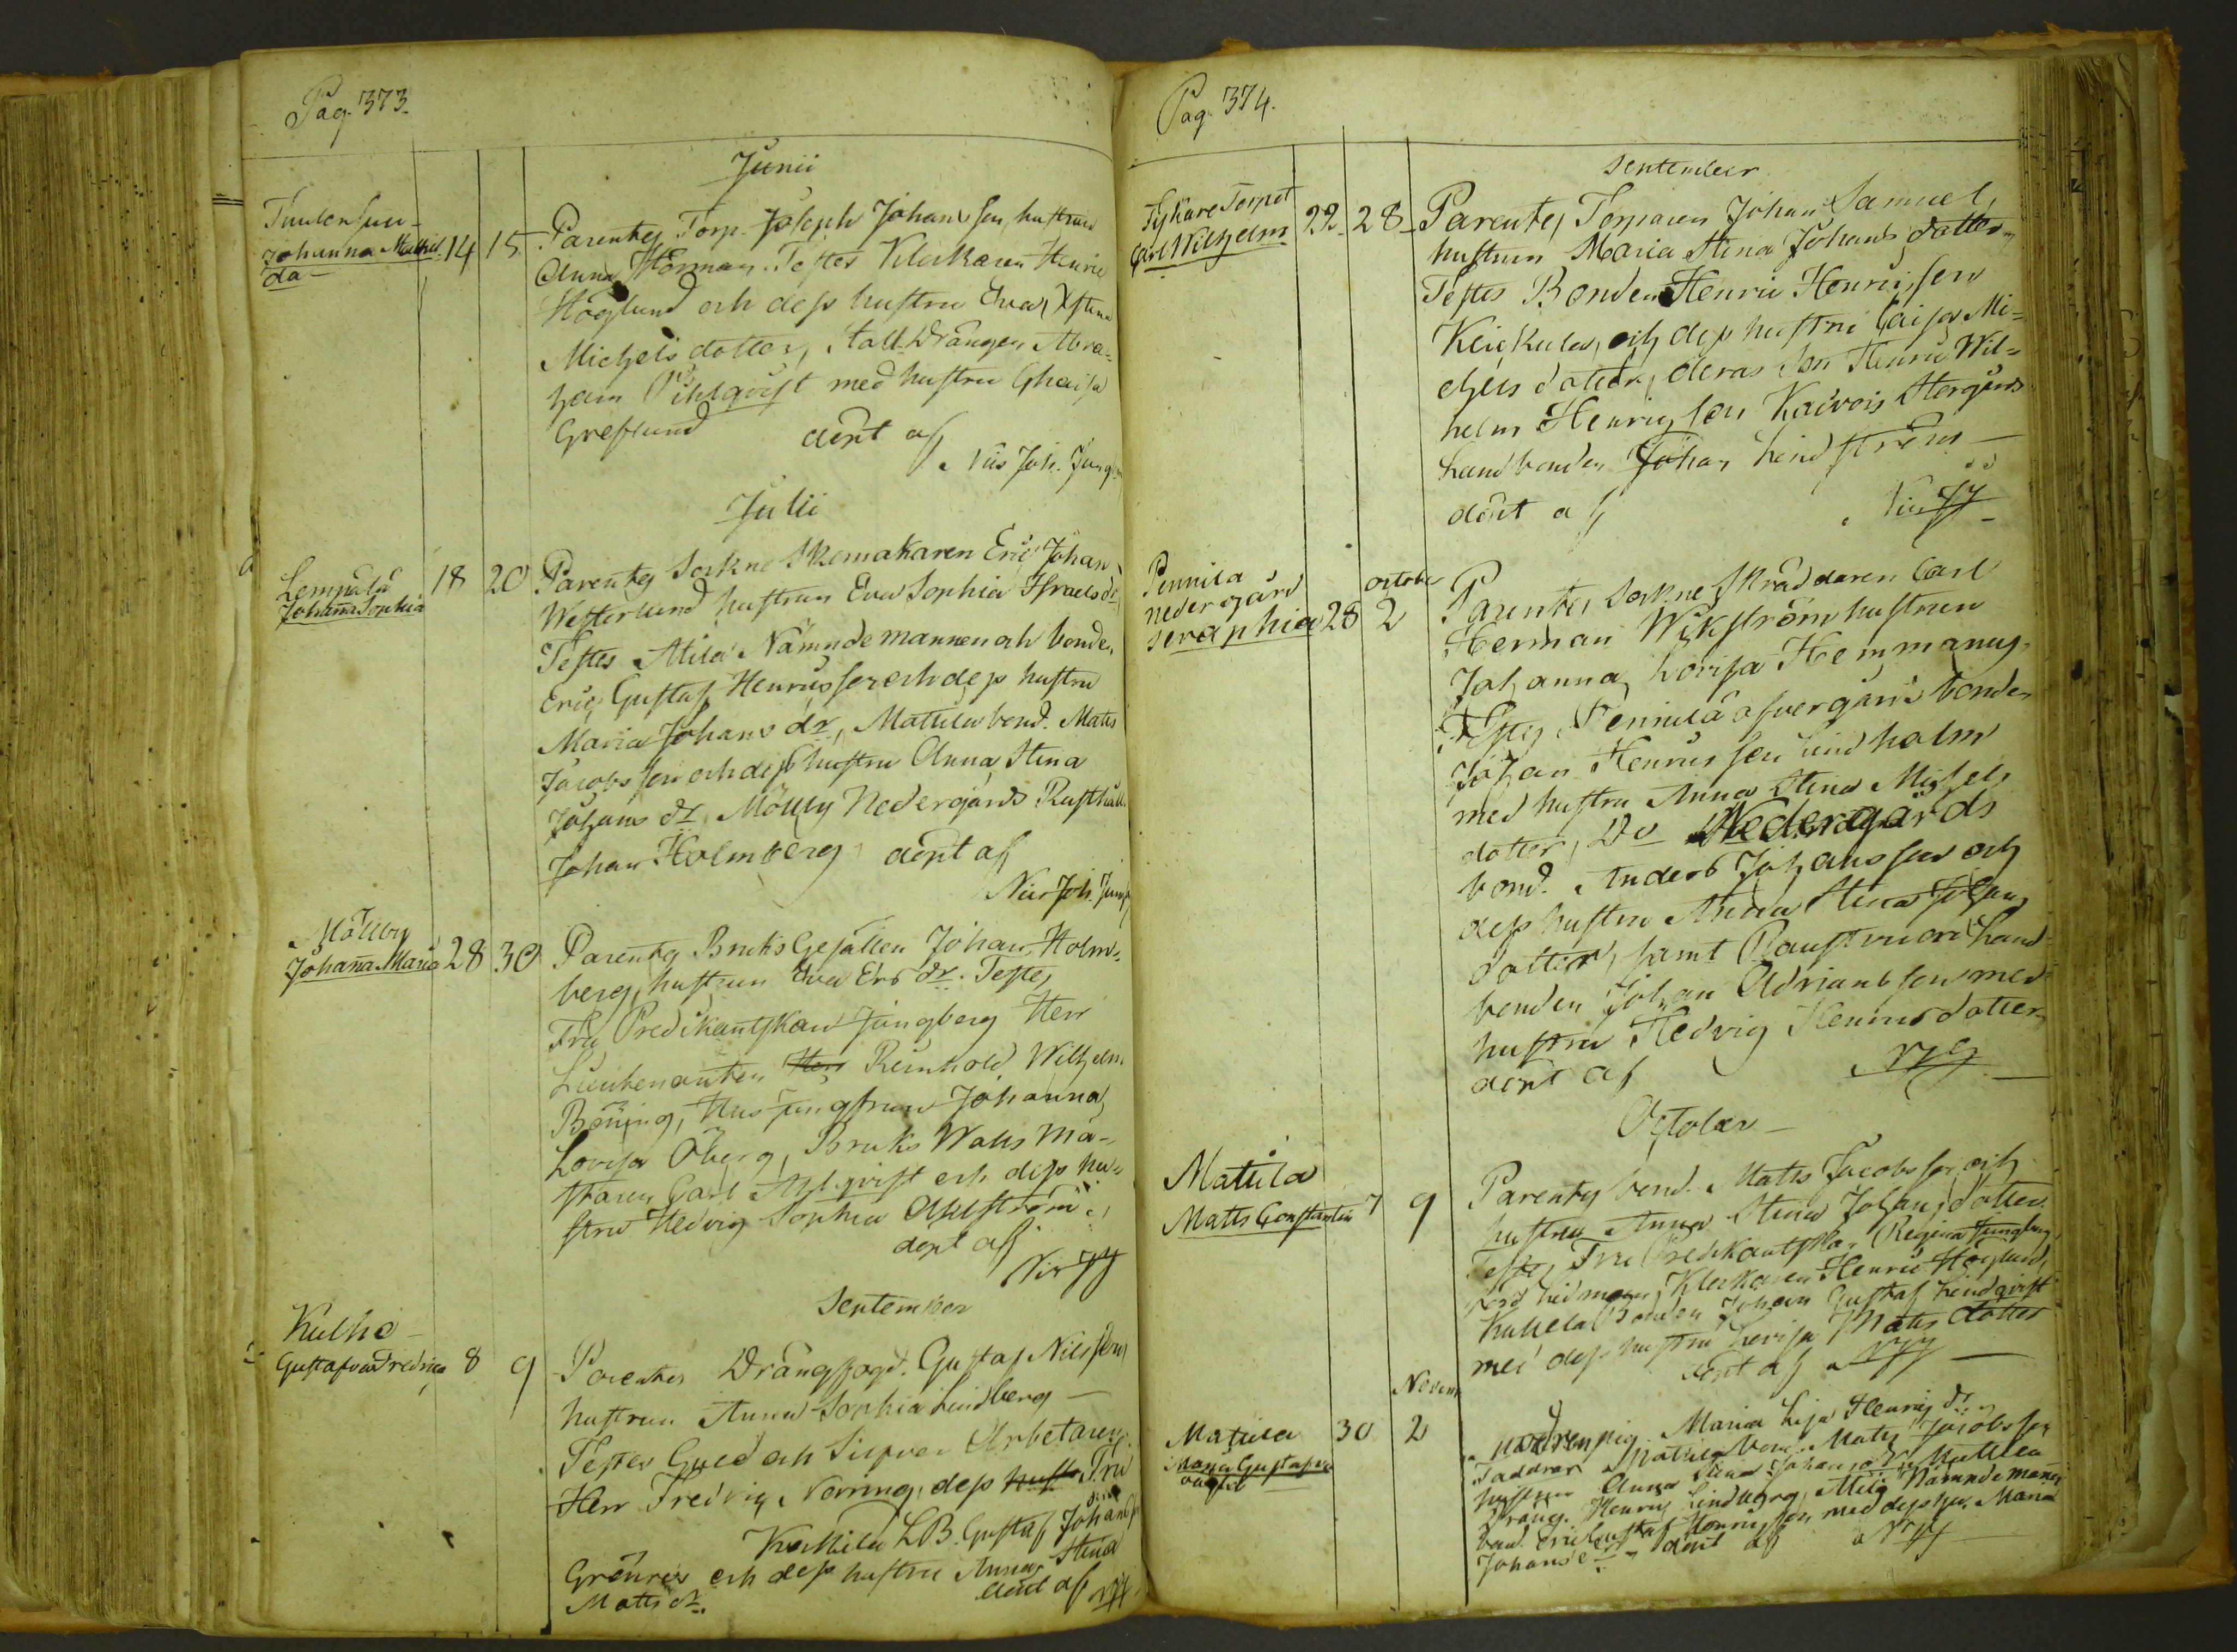 Pag. 373.
Junii
Johanna Mathil
da
14 15 Parentes Torp. Joseph Johansson, hustrun
Anna Herman. Testes Klockaren Henric
Höglund och dess hustru Eva Xstina
Michelsdotter, Stall Drängen Abra-
ham Pihlqvist med hustru Chaisa
Greflund döpt af
Nils Joh. Jungberg
Julii
Lempälä
Johanna Sophia
18 20 Parentes Sockne Skomakaren Eric Johan
Westerlund hustrun Eva Sophia Israels dr
Testes Attila Nämndemannen och bonden
Eric Gustaf Henricsson och dess hustru
Maria Johans dr, Mattila bond. Matts
Jacobsson och dess hustru Anna Stina
Johans dr Mölby Nedergårds Rusthåll.
Johan Holmberg döpt af
Nils Joh. Jungb
Mölby
Johanna Maria
28 30 Parentes Bruks Gesällen Johan Holm-
berg, hustrun Eva Ers dr. Testes
Fru Predikantskan Jungberg Herr
Lieutenanten Herr Reinhold Wilhelm
Böning, Hus Jungfrun Johanna
Lovisa Öberg, Bruks Walls Mä-
staren Carl Ahlqvist och dess hu-
stru Hedvig Sophia
döpt af
NJJ
September
Gustafva Fredrica
8 9 Parentes Drängfogd. Gustaf Nilsson
hustrun Anna Sophia Lindberg
Testes Guld och Silfver Arbetaren
Herr Fredric Norring, dess hustr Fru
Kottila LB. Gustaf Johansson
Grönros och dess hustru Anna Stina
Matts dr. döpt af NJJ
Pag. 374.
September
Torpet
Carl Wilhelm
22 28 Parentes Torparen Johan Samuel,
hustrun Maria Stina Johans dotter
Testes Bonden Henric Henricsson
och dess hustru Caisa Mi-
chels dotter, deras Son Henric Wil-
helm Henricsson Kaivois Storgårds
Landbonden Johan Lindström
döpt af
NJJ
Pennila
nedergård
Seraphia
28 october 2
Parentes Sockne Skräddaren Carl
Herman Wikström hustrun
Johanna Lovisa Hemmanus.
Testes Pennilä öfvergårds bonden
Johan Henricsson Lindholm
med hustru Anna Stina Michels
dotter, Do Nedergårds
bond. Anders Johansson och
dess hustru Anna Stina Johans
dotter, samt Land-
bonden Johan Adriansson med
hustru Hedvig Henricsdotter
döpt af NJJ
October
Matila
Matts Constantin
7 9 Parentes bond. Matts Jacobsson och
hustrun Anna Stina Johansdotter.
Testes, Fru Predikantskan Regina Jungberg
Klockaren Henric Höglund,
Bonden Johan Gustaf Lindqvist
med dess hustru Lovisa Matts dotter
döpt af NJJ
Novem
Matila
Maria Gustafva
oägta
30 2 Modren pig. Maria Lisa Henrics dr.
Faddrar Matila bond. Matts Jacobsson
hustrun Anna Stina Johans dr Mattila
Dräng. Henric Lindberg, Attila Nämndeman
bond. Eric Gustaf Henricsson med dess hu. Maria
Johans dr. döpt af NJJ